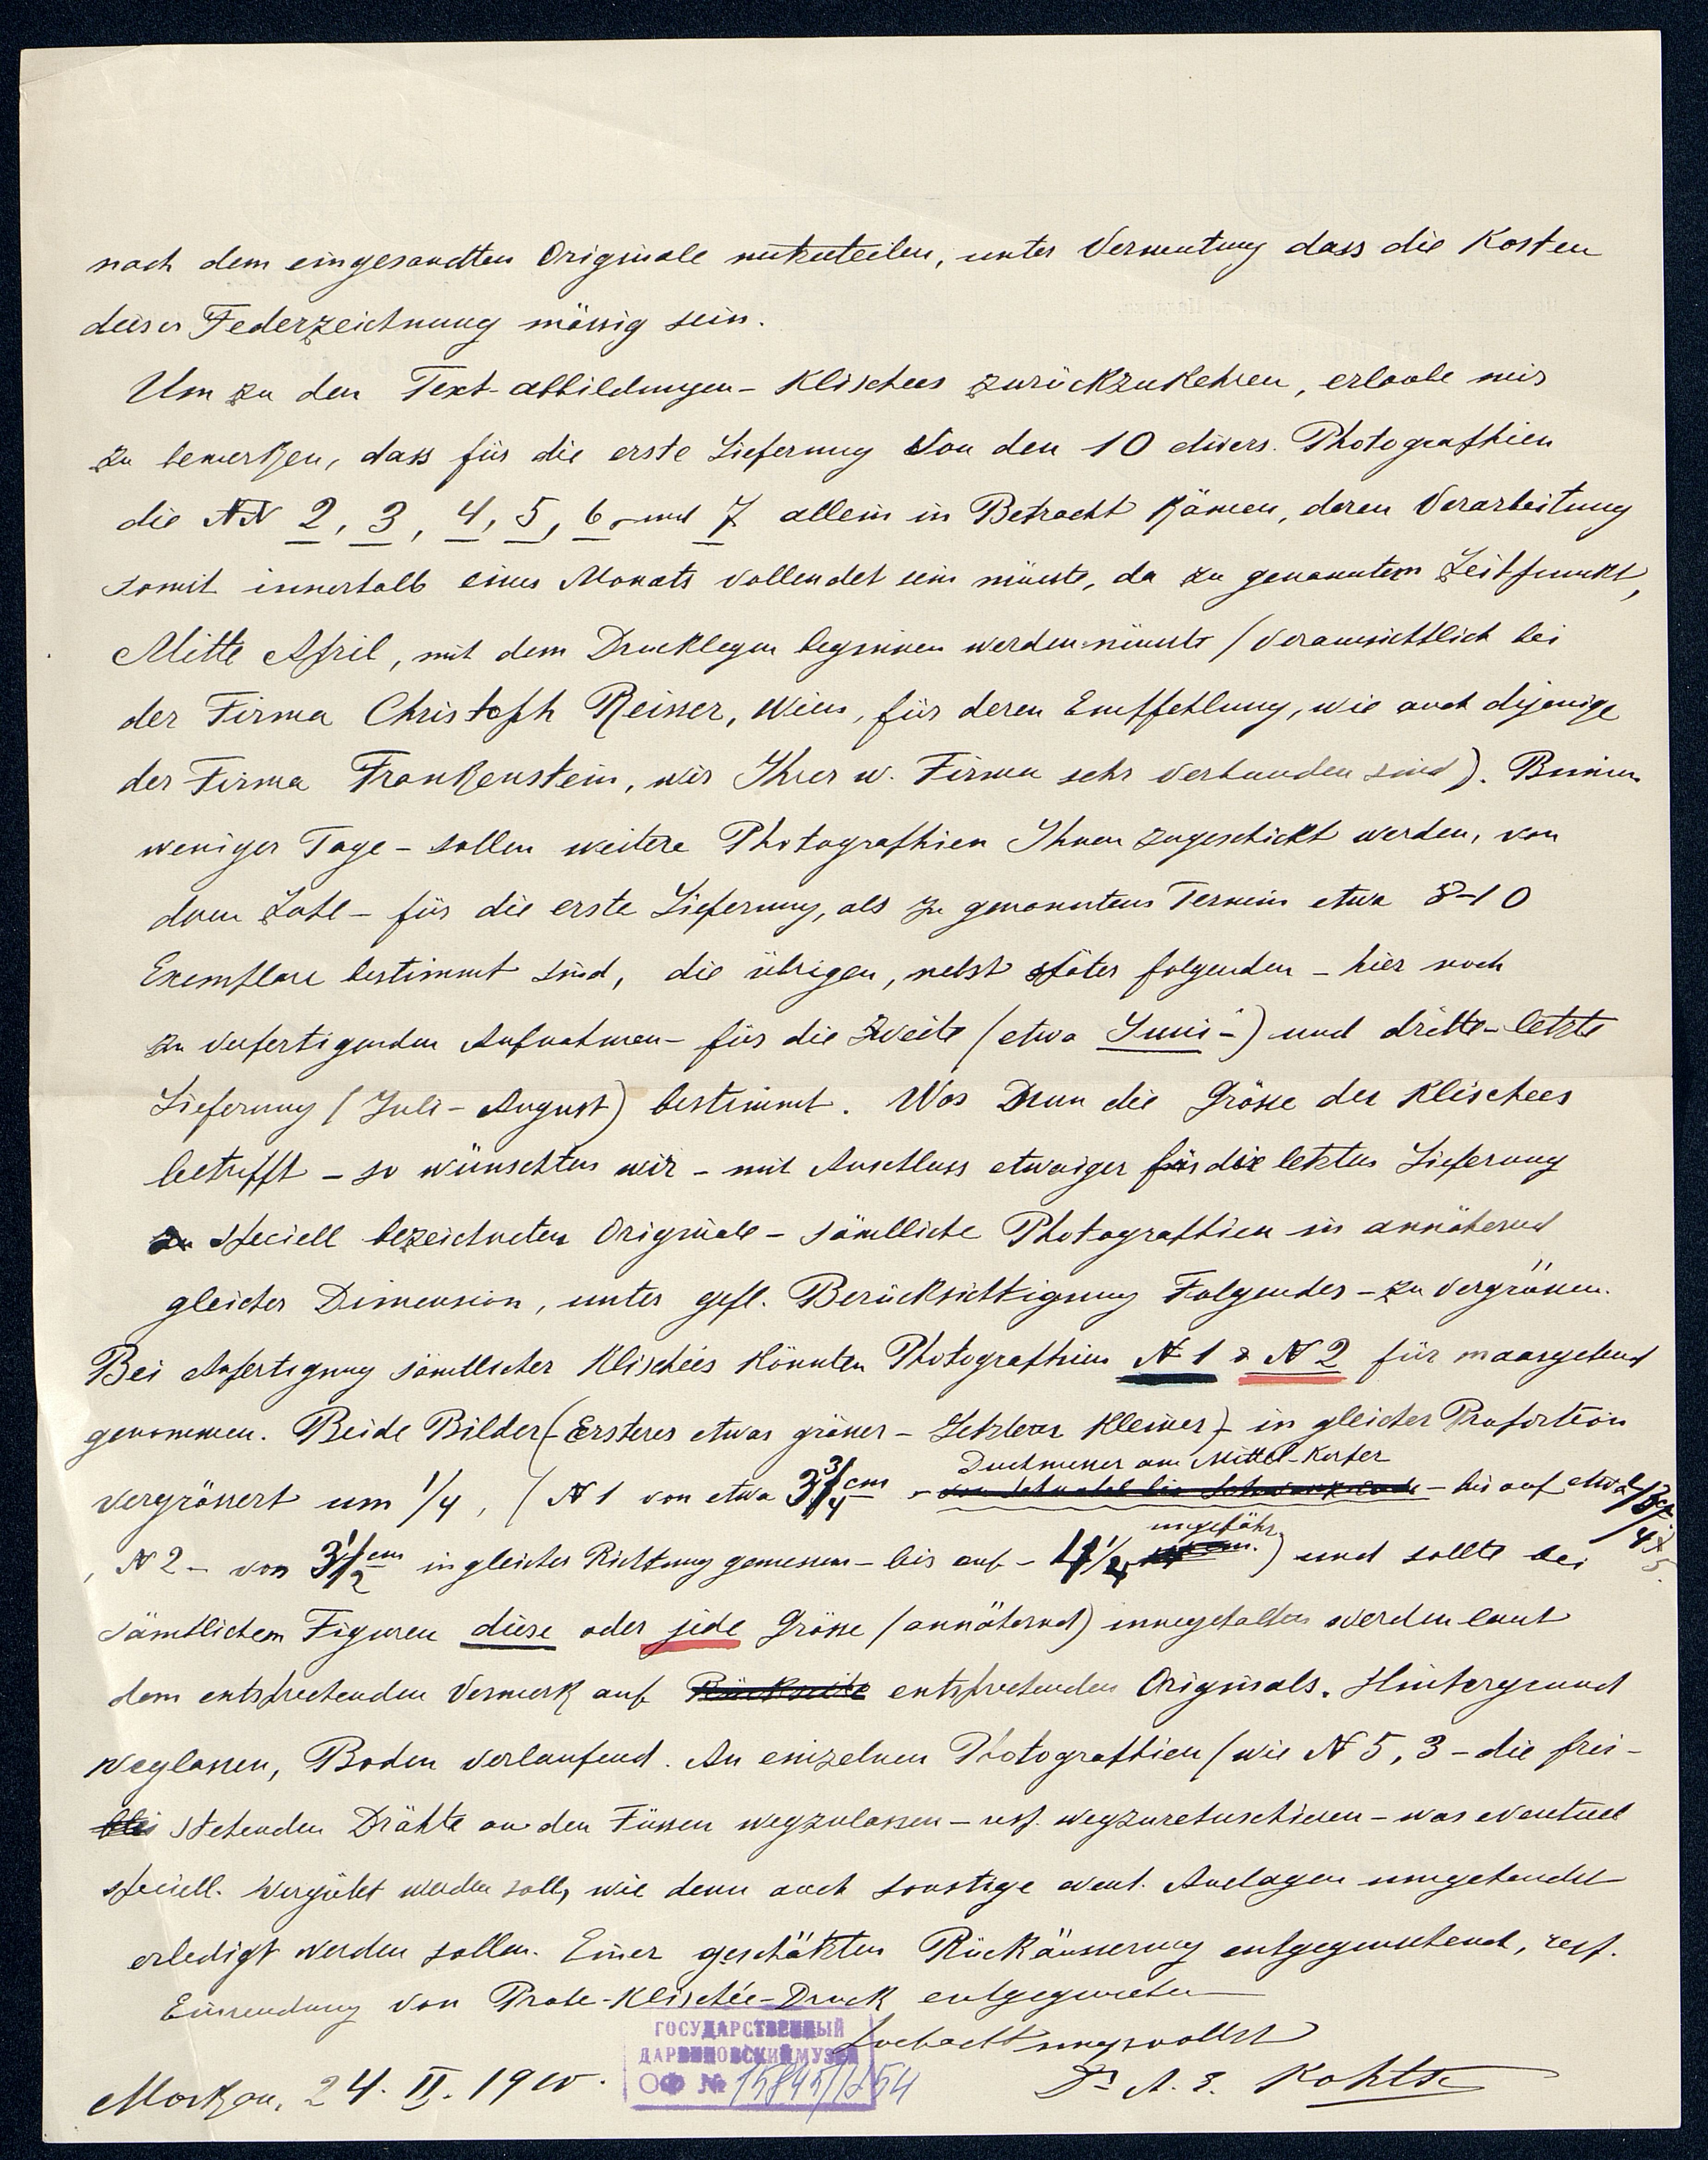 nach dem eingesandten Originale mitzuteilen, unter Vermutung dass die Kosten
dieser Federzeichnung mässig sein.
Um zu den Text-abbildungen-Klischees zurückzukehren, erlaube mir
zu bemerken, dass für die erste Lieferung von den 10 divers. Photographien
die NN 2, 3, 4, 5, 6, und 7 allein in Betracht kämen, deren Verarbeitung
somit innerhalb eines Monats vollendet sein müsste, da zu genanntem Zeitpunkt,
Mitte April, mit dem Drucklegen beginnen werden müsste (voraussichtlich bei
der Firma Christoph Reisser, Wien, für deren Empfehlung, wie auch diejenige
der Firma Frankenstein, wir Ihrer w. Firma sehr verbunden sind). Binnen
weniger Tage - sollen weitere Photographien Ihnen zugeschickt werden, von
deren Zahl - für die erste Lieferung, als zu genanntem Termin etwa 8-10
Exemplare bestimmt sind, die übrigen, nebst später folgenden - hier noch
zu verfertigenden Aufnahmen - für die zweite (etwa Juni-) und dritte - letzte
Lieferung (Juli - August) bestimmt. Was nun die Grösse der Klischees
betrifft - so wünschten wir - mit Ausschluss etwaiger für die letzten Lieferung
speciell bezeichneten Originale - sämtliche Photographien in annähernd
gleicher Dimension, unter gefl. Berücksichtigung Folgendes - zu vergrössern.
Bei Anfertigung sämtlicher Klischées könnten Photographien N 1 & N 2 für maasgebend
genommen. Beide Bilder (Ersteres etwas grösser - Letzteres kleiner) - in gleicher Proportion
Durchmesser am Mittel-Körper
vergrössert um 1/4, (N 1 von etwa 3 3/4 cm - bis auf etwa
ungefähr
, N 2 - von 3 1/2 cm in gleicher Richtung gemessen - bis auf - 4 1/2) und sollte bei
sämtlichen Figuren diese oder jede Grösse (annähernd) innegehalten werden laut
dem entsprechenden Vermerk auf Rückseite entsprechenden Originals. Hintergrund
weglassen, Boden verlaufend. An einzelnen Photographien (wie N 5, 3 - die frei-
stehenden Drähte an den Füssen wegzulassen - resp. wegzuretuschieren - was eventuel
speciell vergütet werden soll, wie denn auch sonstige event. Auslagen umgehendst
erledigt werden sollen. Einer geschätzten Rückäusserung entgegensehend, resp.
Einsendung von Probe-Klischée-Druck entgegensehen
hochachtungsvollst
Dr A. E. Kohts
Moskau, 24. II. 1910.
ГОСУДАРСТВЕННЫЙ
ДАРВИНОВСКИЙ МУЗЕЙ
ОФ № 15845/1254